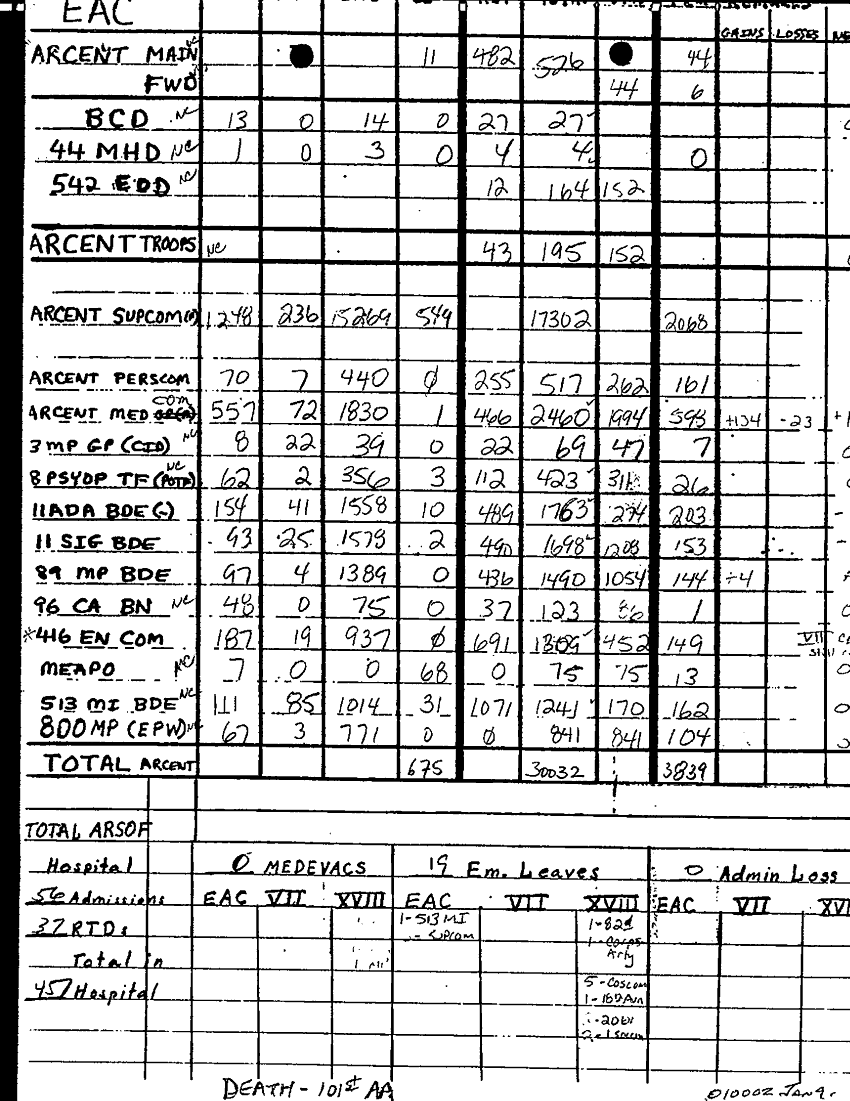 EAC
GAINS LOSSES
ARCENT MAIN NC 11 482 526 44
FWD 44 6
BCD NC 13 0 14 0 27 27
44 MHD NC 1 0 3 0 4 4 0
542 EOD NC 12 164 152
ARCENT TROOPS NC 43 195 152
ARCENT SUPCOM 1248 236 15269 549 17302 2068
ARCENT PERSCOM 70 7 440 0 255 517 262 161
ARCENT MED COM 557 72 1830 1 466 2460 1994 593 +134 -23
3 MP GP (CID) NC 8 22 39 0 22 69 47 7
8 PSYOP TF NC 62 2 356 3 112 423 311 26
11 ADA BDE (-) 154 41 1558 10 489 1763 203
11 SIG BDE 93 25 2 490 1698 1208 153
89 MP BDE 97 4 1389 0 436 1490 1054 144 +4
96 CA BN NC 48 0 75 0 37 123 86 1
*416 EN COM 187 19 937 0 691 452 149 VII
MEAPO NC 7 0 0 68 0 75 75 13
513 MI BDE NC 111 85 1014 31 1071 1241 170 162
800 MP (EPW) 67 3 771 0 0 841 841 104
TOTAL ARCENT 675 30032 3839
TOTAL ARSOF
Hospital 0 MEDEVACS 19 Em. Leaves 0 Admin Loss
56 Admissions EAC VII XVIII EAC VII XVIII EAC VII
37 RTDs 1-513 MI 1-82d
SUPCOM 1-Corps
Total in Arty
457 Hospital 5-COSCOM
DEATH - 101st AA 010002 JAN 9